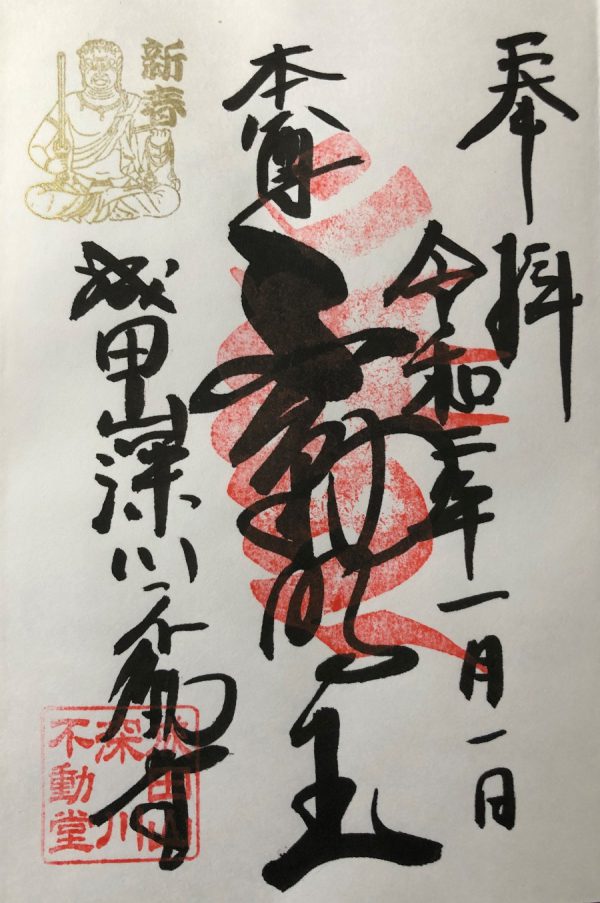 奉拝
令和二年一月一日
本尊
不動明王
成田山深川不動堂
新春
成田山
深川
不動堂